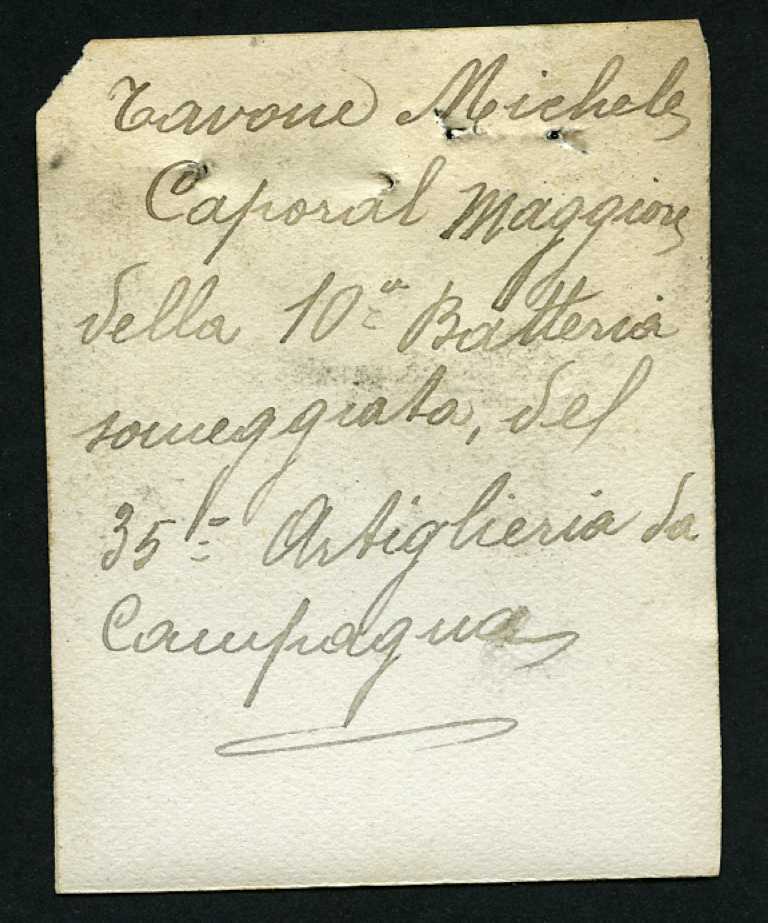 Tavone Michele
Caporal Maggiore
della 10ª Batteria
someggiata, del
35º Artiglieria da
Campagna